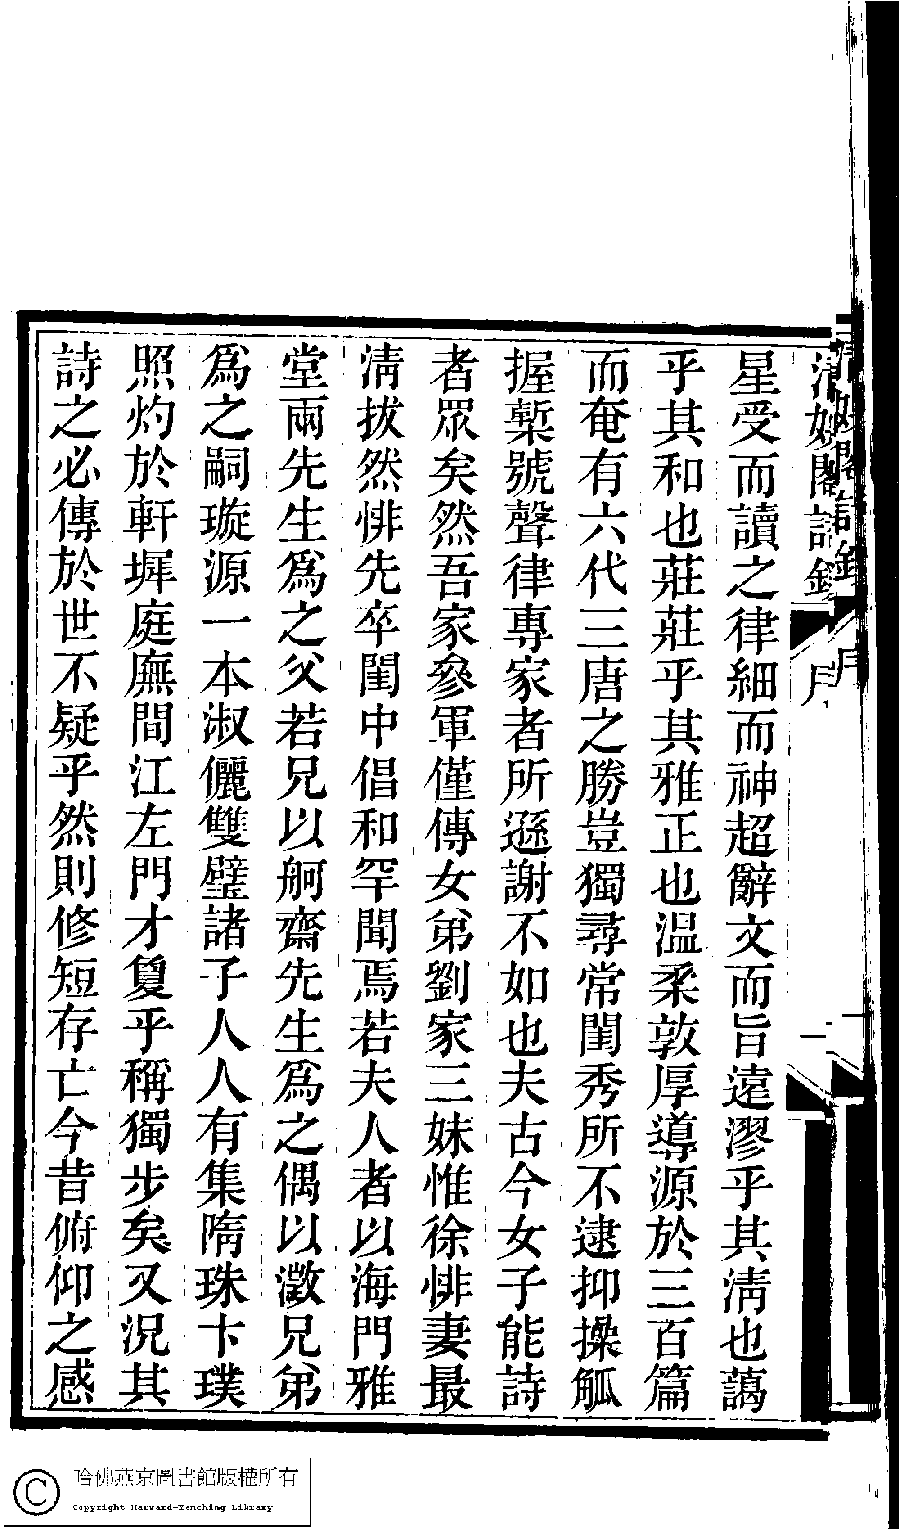 清娛閣詩鈔 序 一
星受而讀之律細而神超辭文而旨遠漻乎其清也藹
乎其和也莊莊乎其雅正也温柔敦厚導源於三百篇
而奄有六代三唐之勝豈獨尋常閨秀所不逮抑操觚
握槧號聲律專家者所遜謝不如也夫古今女子能詩
者眾矣然吾家參軍僅傳女弟劉家三妹惟徐悱妻最
清拔然悱先卒閨中倡和罕聞焉若夫人者以海門雅
堂兩先生爲之父若兄以舸齋先生爲之偶以澂兄弟
爲之嗣璇源一本淑儷雙璧諸子人人有集隋珠卞璞
照灼於軒墀庭廡間江左門才敻乎稱獨步矣又況其
詩之必傳於世不疑乎然則修短存亡今昔俯仰之感
哈佛燕京圖書館版權所有
Copyright Harvard-Yenching Library